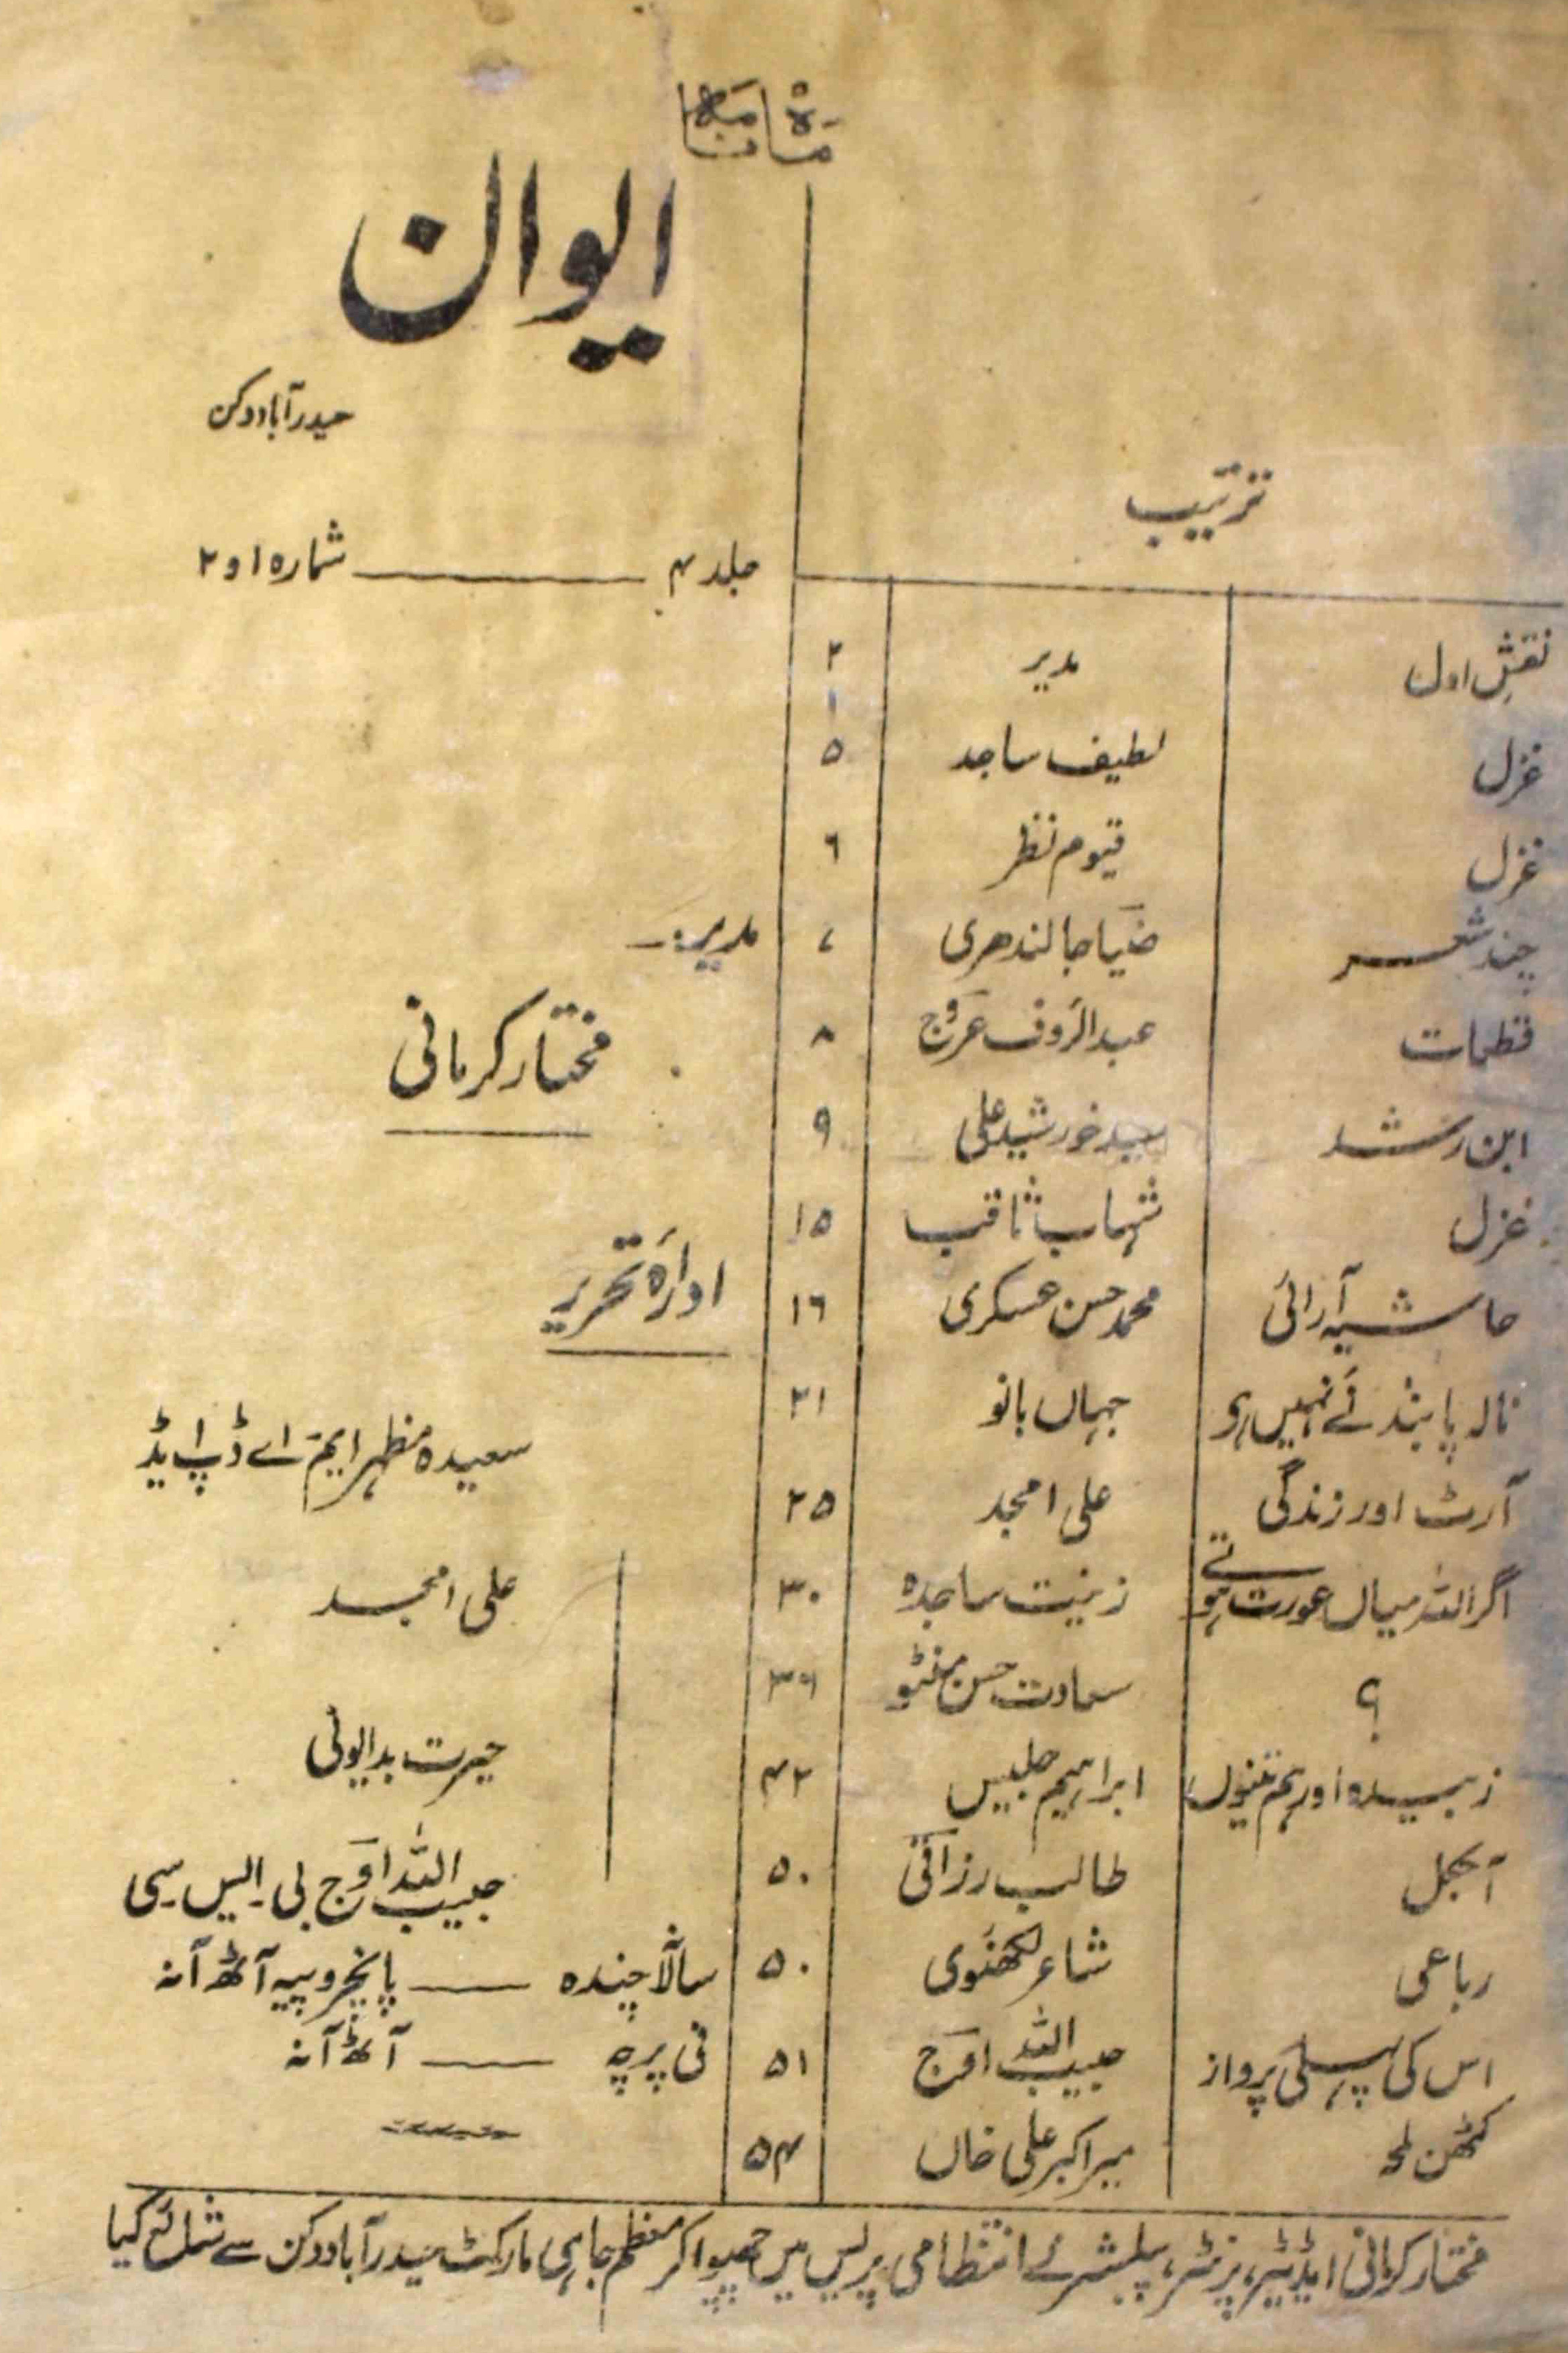 ماہنامہ
ایوان
حیدرآباد دکن
جلد ۴ ــــــ شمارہ ۱ و ۲
ترتیب
نقشِ اول مدیر ۲
غزل لطیف ساجد ۵
غزل قیوم نظر ۶
چند شعر ضیا جالندھری ۷
قطعات عبدالرؤف عروج ۸
ابن رشد سید خورشید علی ۹
غزل شہاب ثاقب ۱۵
حاشیہ آرائی محمد حسن عسکری ۱۶
نالہ پابند نَے نہیں ہی جہاں بانو ۲۱
آرٹ اور زندگی علی امجد ۲۵
اگر اللہ میاں عورت ہوتے زینت ساجدہ ۳۰
؟ سعادت حسن منٹو ۳۶
زبیدہ اور ہم تینوں ابراہیم جلیس ۴۲
آنچل طالب رزاقی ۵۰
رباعی شاعر لکھنوی ۵۰
اس کی پہلی پرواز حبیب اللہ اوج ۵۱
کٹھن لمحہ میر اکبر علی خاں ۵۴
مدیر:۔
مختار کرمانی
ادارۂ تحریر
سعیدہ مظہر ایم اے ڈپ ایڈ
علی امجد
حیرت بدایونی
حبیب اللہ اوج بی۔ایس سی
سالانہ چندہ ــــ پانچروپیہ آٹھ آنہ
فی پرچہ ــــ آٹھ آنہ
مختار کرمانی ایڈیٹر، پرنٹر، پبلشر نے انتظامی پریس میں چھپوا کر معظم جاہی مارکٹ حیدرآباد دکن سے شائع کیا